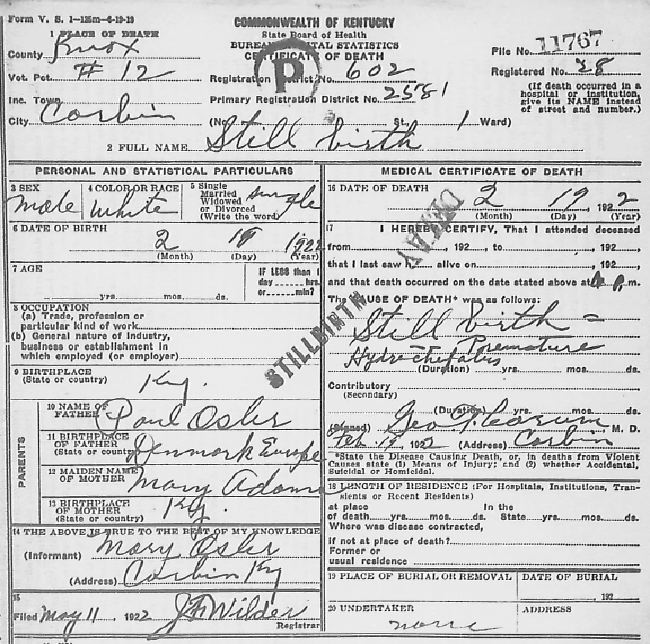 Form V. S. 1-125m-6-19-19
COMMONWEALTH OF KENTUCKY
State Board of Health
BUREAU VITAL STATISTICS
CERTIFICATE OF DEATH
1 PLACE OF DEATH
County Knox
Vot. Pct. #12
Inc. Town
City Corbin
P
Registration District No. 602
Primary Registration District No. 2581
(No. St. 1 Ward)
File No. 11767
Registered No. 28
(If death occurred in a
hospital or institution,
give its NAME instead
of street and number.)
2 FULL NAME Still birth
PERSONAL AND STATISTICAL PARTICULARS
3 SEX
Male
4 COLOR OR RACE
White
5 Single
Married
Widowed
or Divorced
(Write the word)
single
6 DATE OF BIRTH
2 19 1922
(Month) (Day) (Year)
7 AGE
yrs. mos. ds.
IF LESS than 1
day hrs.
or min?
8 OCCUPATION
(a) Trade, profession or
particular kind of work
(b) General nature of industry,
business or establishment in
which employed (or employer)
STILLBIRTH
9 BIRTHPLACE
(State or country) Ky.
PARENTS
10 NAME OF
FATHER Paul Osler
11 BIRTHPLACE
OF FATHER
(State or country) Denmark Europe
12 MAIDEN NAME
OF MOTHER Mary Adams
13 BIRTHPLACE
OF MOTHER
(State or country) Ky.
14 THE ABOVE IS TRUE TO THE BEST OF MY KNOWLEDGE
(Informant) Mary Osler
(Address) Corbin Ky
15
Filed May 11 1922 J F Wilder
Registrar
MEDICAL CERTIFICATE OF DEATH
16 DATE OF DEATH 2 19 1922
(Month) (Day) (Year)
DELAY
17 I HEREBY CERTIFY, That I attended deceased
from , 192 to , 192
that I last saw h alive on , 192
and that death occurred on the date stated above at 4 p m.
The CAUSE OF DEATH* was as follows:
Still birth =
Premature
Hydrocephalus
(Duration) yrs. mos. ds.
Contributory
(Secondary)
(Duration) yrs. mos. ds.
(Signed) Geo M. D.
Feb. 19 1922 (Address) Corbin
*State the Disease Causing Death, or, in deaths from Violent
Causes state (1) Means of Injury; and (2) whether Accidental,
Suicidal or Homicidal.
18 LENGTH OF RESIDENCE (For Hospitals, Institutions, Tran-
sients or Recent Residents)
at place In the
of death yrs. mos. ds. State yrs. mos. ds.
Where was disease contracted,
if not at place of death?
Former or
usual residence
19 PLACE OF BURIAL OR REMOVAL
DATE OF BURIAL
, 192
20 UNDERTAKER
none
ADDRESS